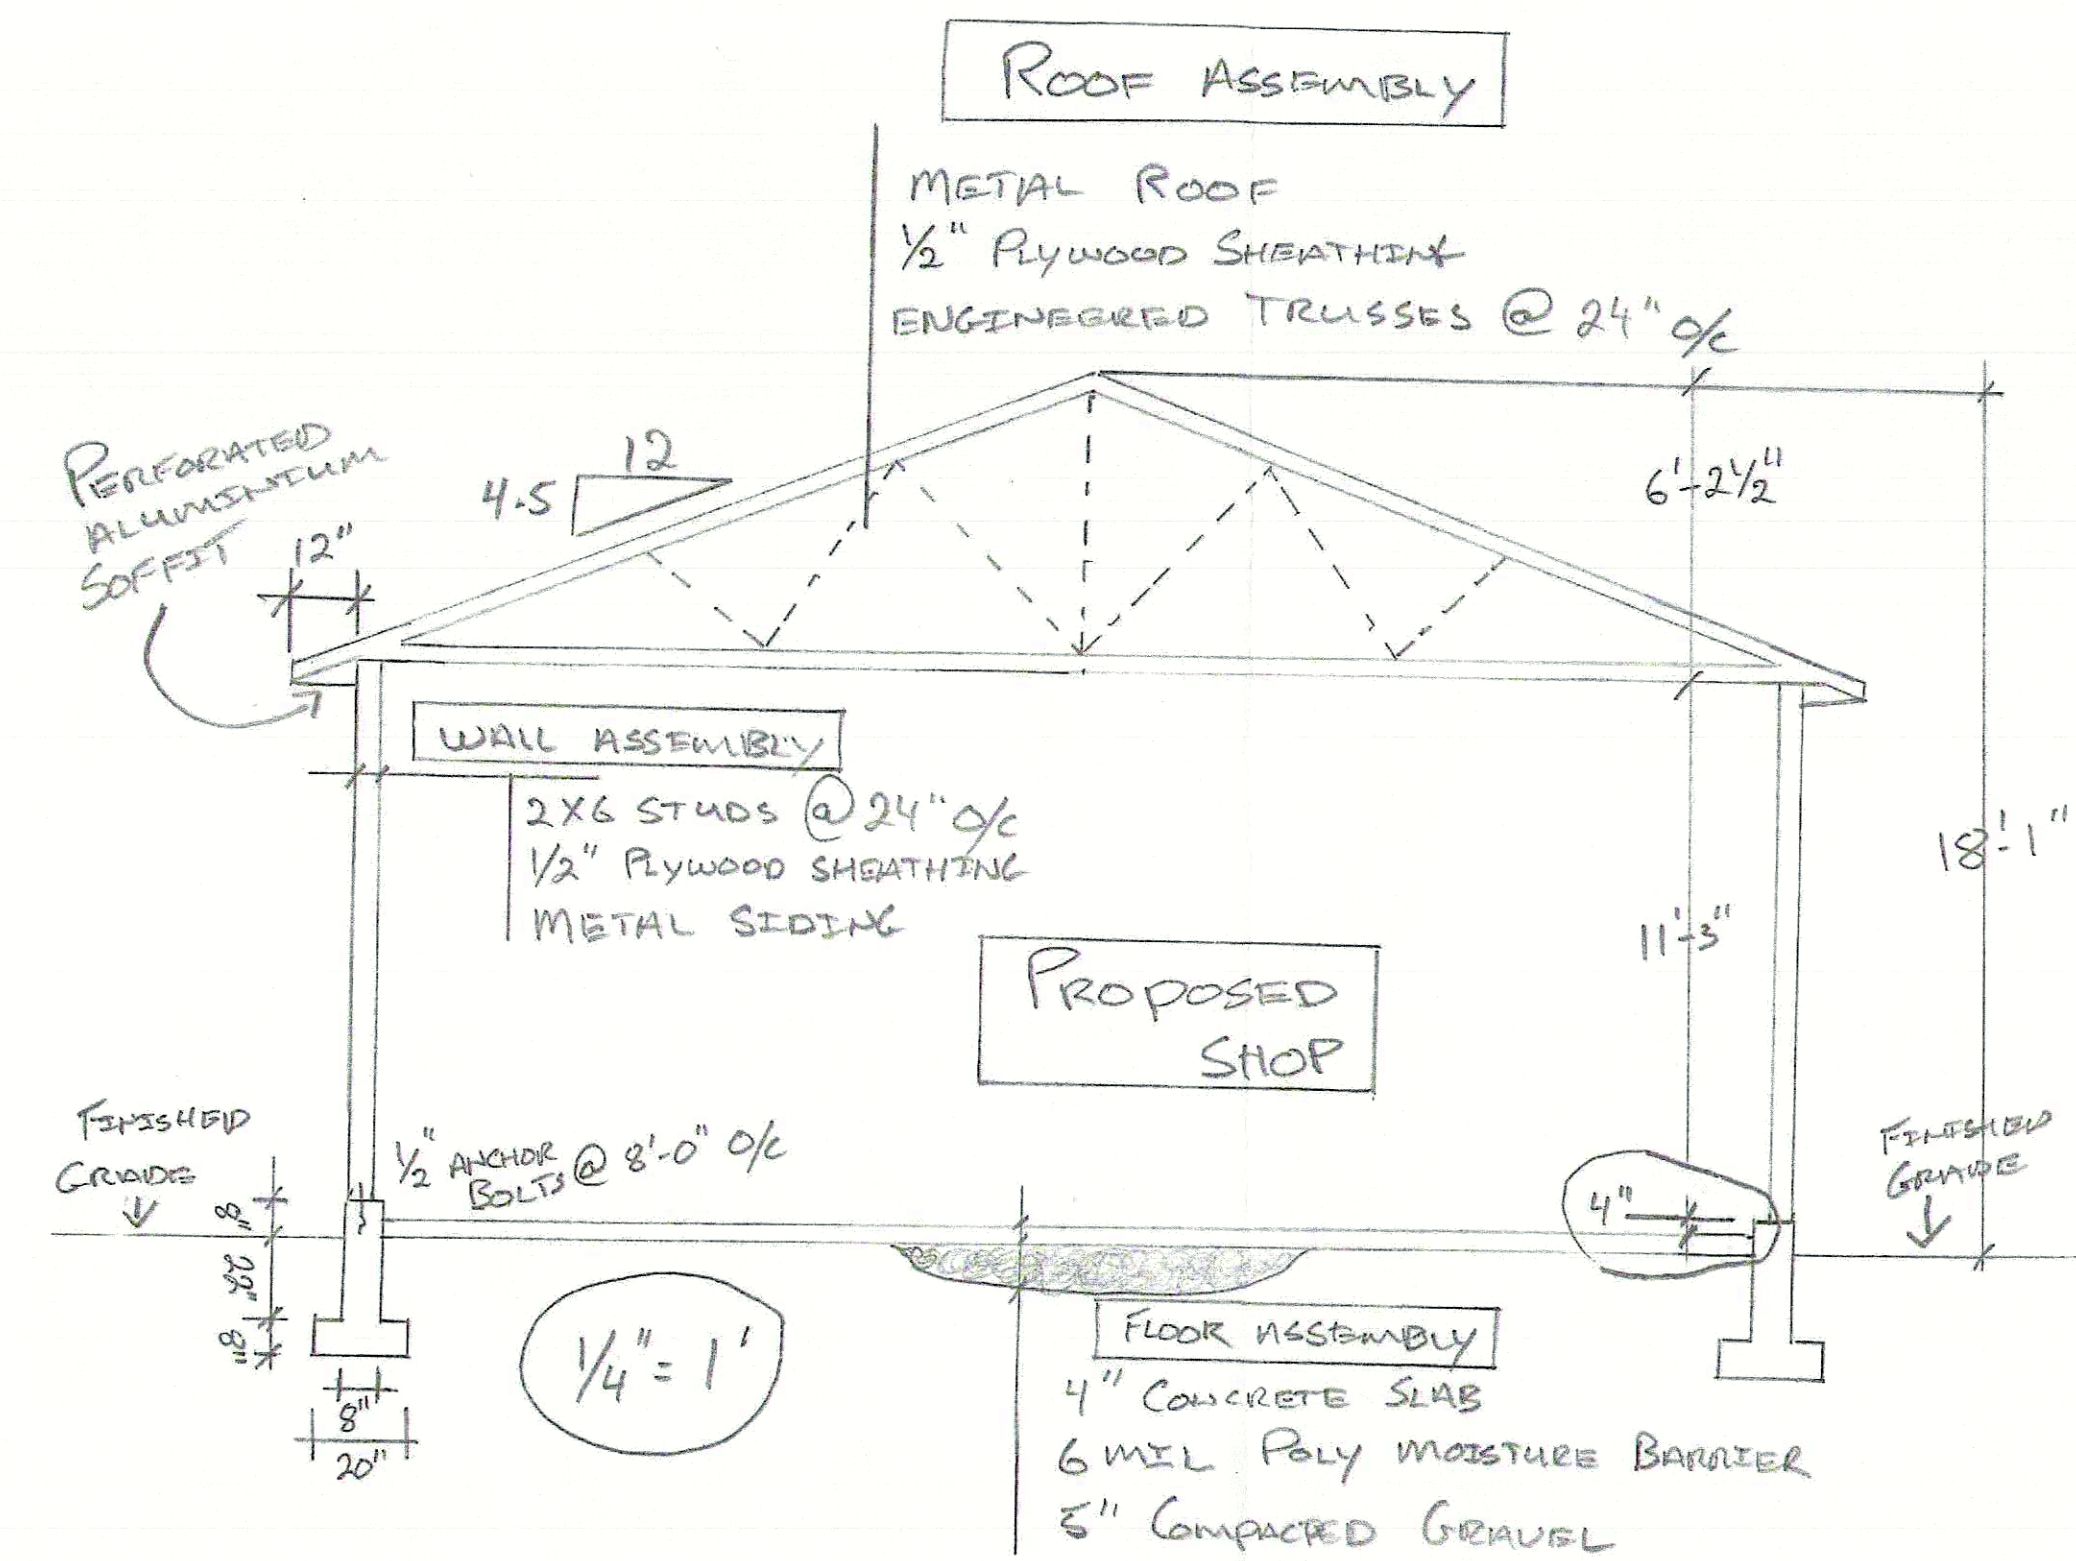 ROOF ASSEMBLY
METAL ROOF
1/2" PLYWOOD SHEATHING
ENGINEERED TRUSSES @ 24" O/C
PERFORATED
ALUMINIUM
SOFFIT
12"
12
4.5
6'-2 1/2"
WALL ASSEMBLY
2X6 STUDS @ 24" O/C
1/2" PLYWOOD SHEATHING
METAL SIDING
18'-1"
11'-3"
PROPOSED
SHOP
FINISHED
GRADE
1/2" ANCHOR
BOLTS @ 8'-0" O/C
FINISHED
GRADE
4"
8"
22"
8"
8"
20"
1/4" = 1'
FLOOR ASSEMBLY
4" CONCRETE SLAB
6 MIL POLY MOISTURE BARRIER
5" COMPACTED GRAVEL